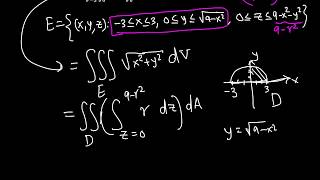 E={(x,y,z): -3≤x≤3, 0≤y≤√9-x², 0≤z≤9-x²-y²}
9-r²
= ∭_E √x²+y² dV
= ∬_D (∫_{z=0}^{9-r²} r dz) dA
y
x
-3
3
D
y=√9-x²